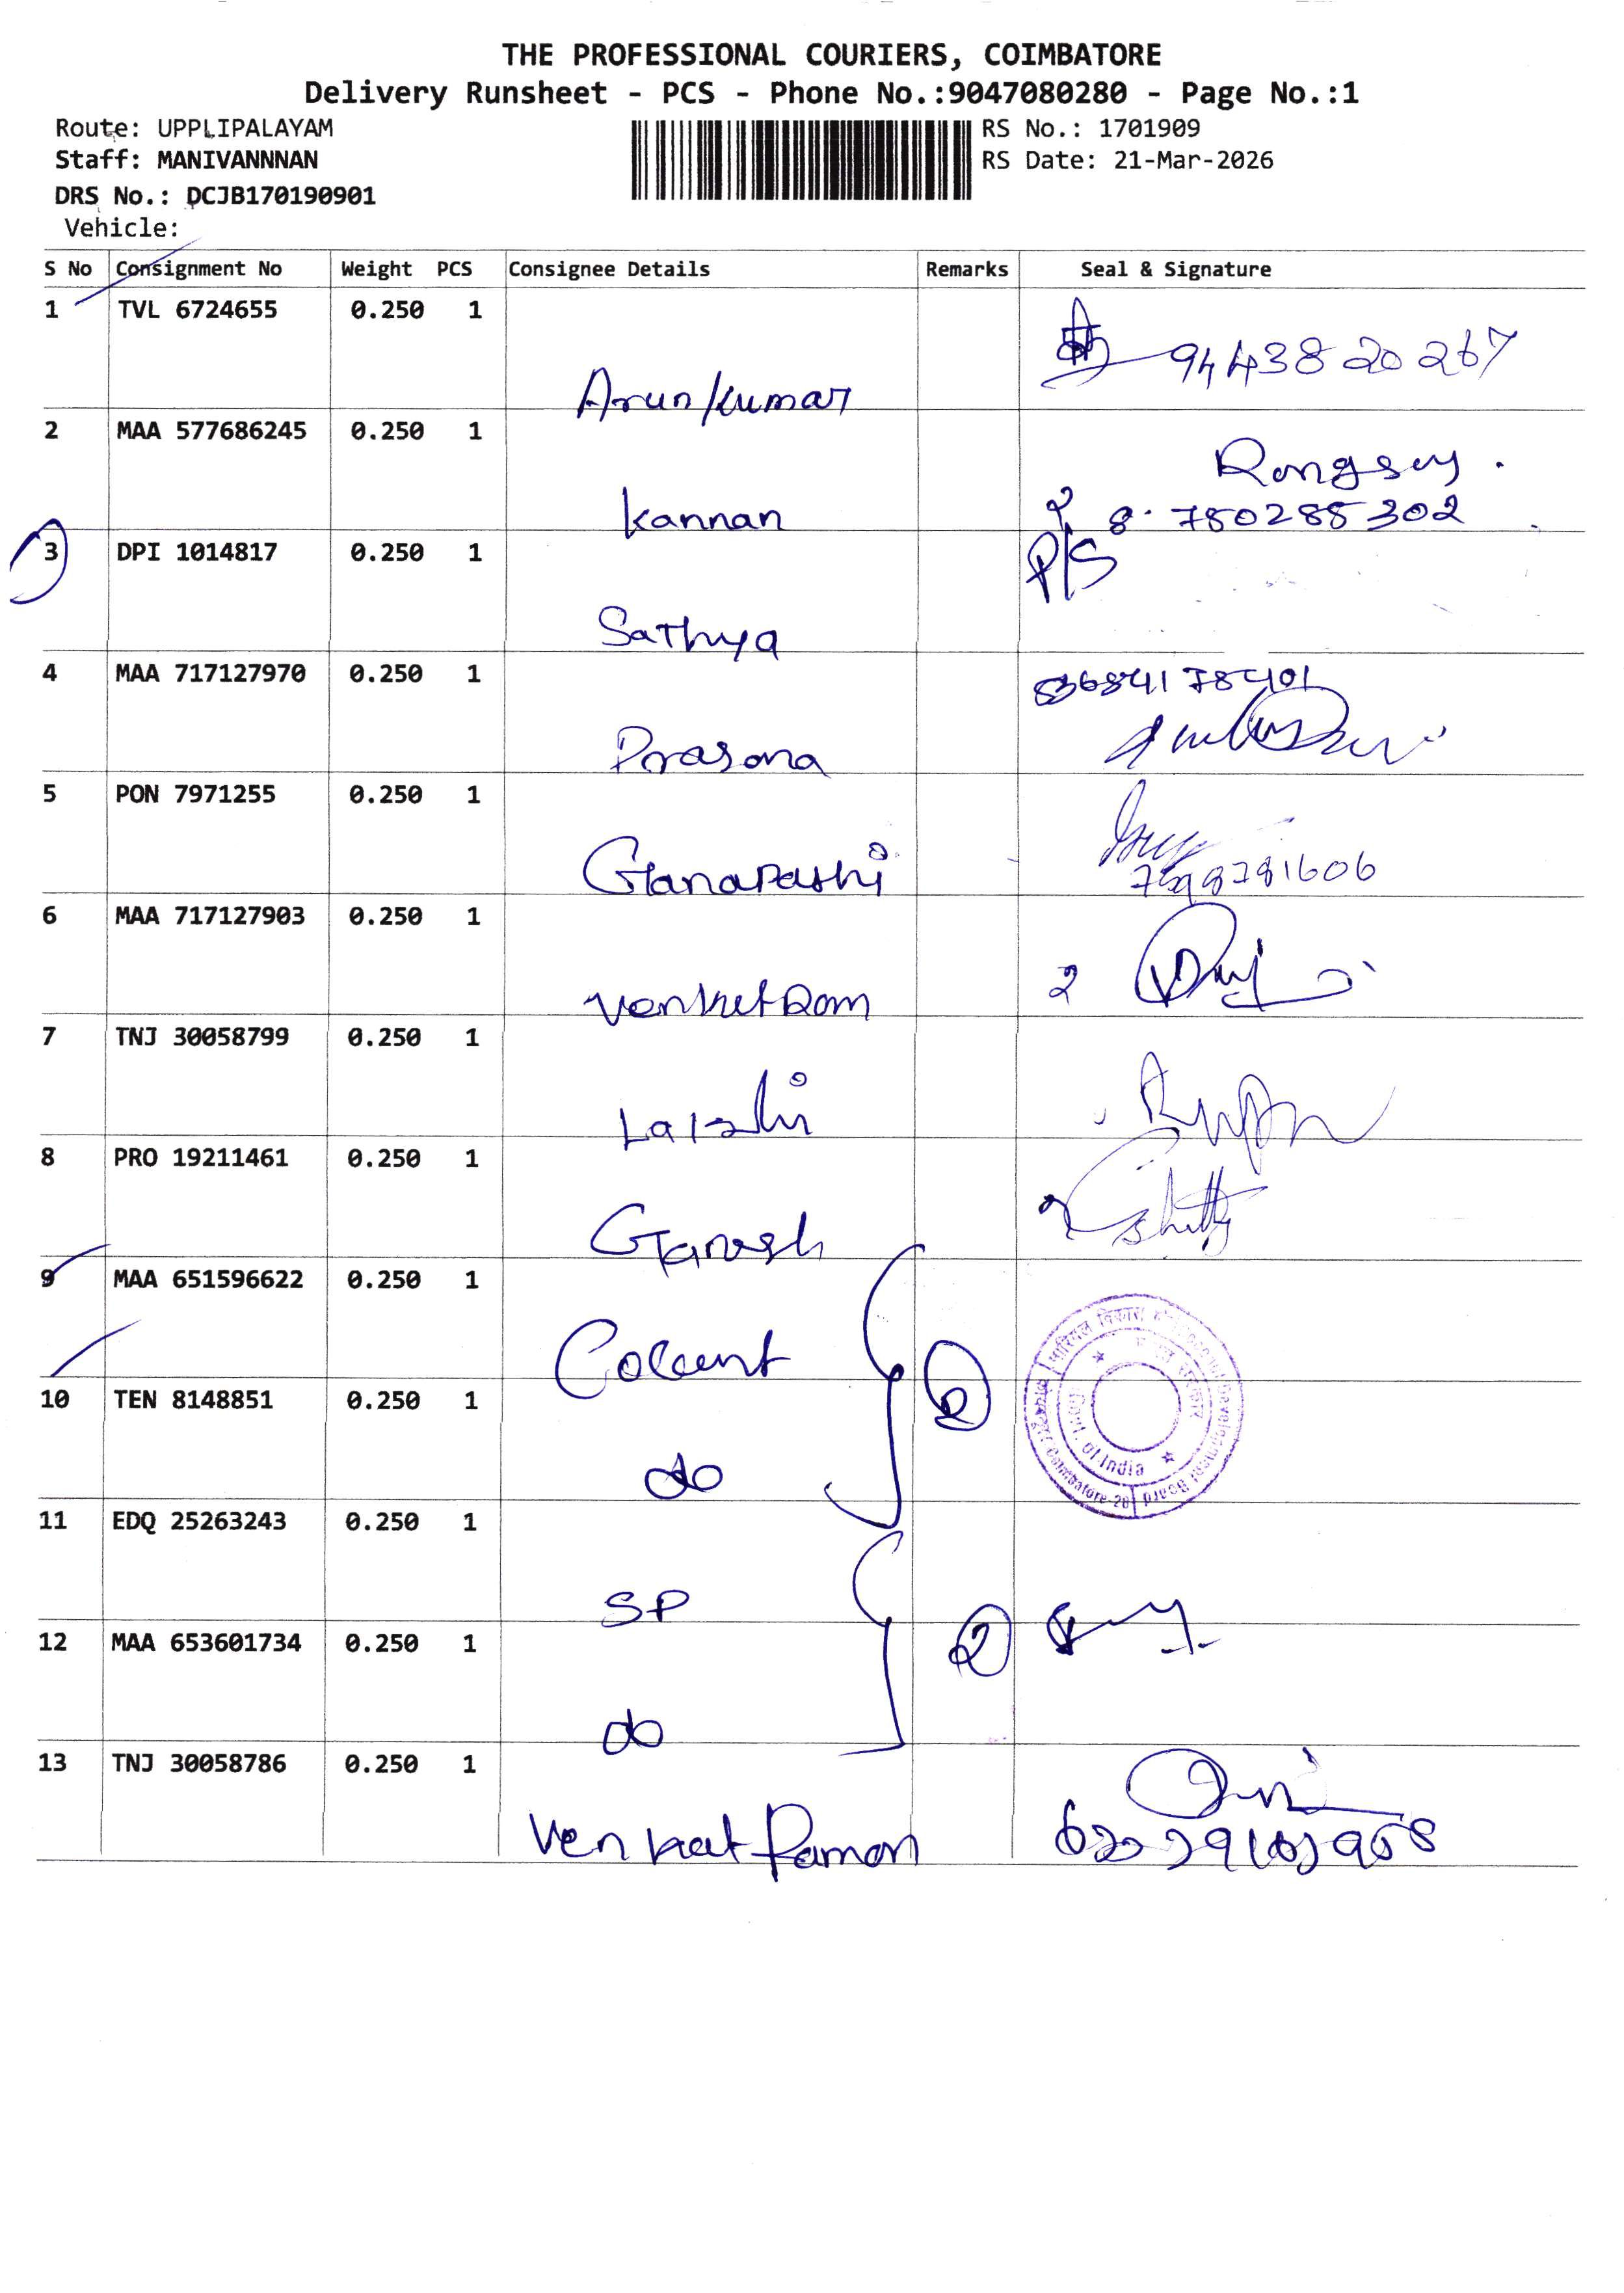 THE PROFESSIONAL COURIERS, COIMBATORE
Delivery Runsheet - PCS - Phone No.:9047080280 - Page No.:1
Route: UPPLIPALAYAM
RS No.: 1701909
Staff: MANIVANNNAN
RS Date: 21-Mar-2026
DRS No.: DCJB170190901
Vehicle:
S No Consignment No Weight PCS Consignee Details Remarks Seal & Signature
1 TVL 6724655 0.250 1
Arunkumar 9443820267
2 MAA 577686245 0.250 1
Kannan 8. 780285302
3 DPI 1014817 0.250 1 P/S
Sathya
4 MAA 717127970 0.250 1
Prasana
5 PON 7971255 0.250 1
Ganapathi
6 MAA 717127903 0.250 1
VenketRam 2
7 TNJ 30058799 0.250 1
8 PRO 19211461 0.250 1
Ganesh
9 MAA 651596622 0.250 1
10 TEN 8148851 0.250 1 2
do
Govt. of India
Coimbatore-28
Development Board
11 EDQ 25263243 0.250 1
SP
12 MAA 653601734 0.250 1 2
do
13 TNJ 30058786 0.250 1
Venkat Raman